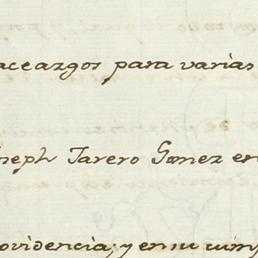 aceazgos para varias
oseph Tarero Gomez en
ovidencia; y en su cump